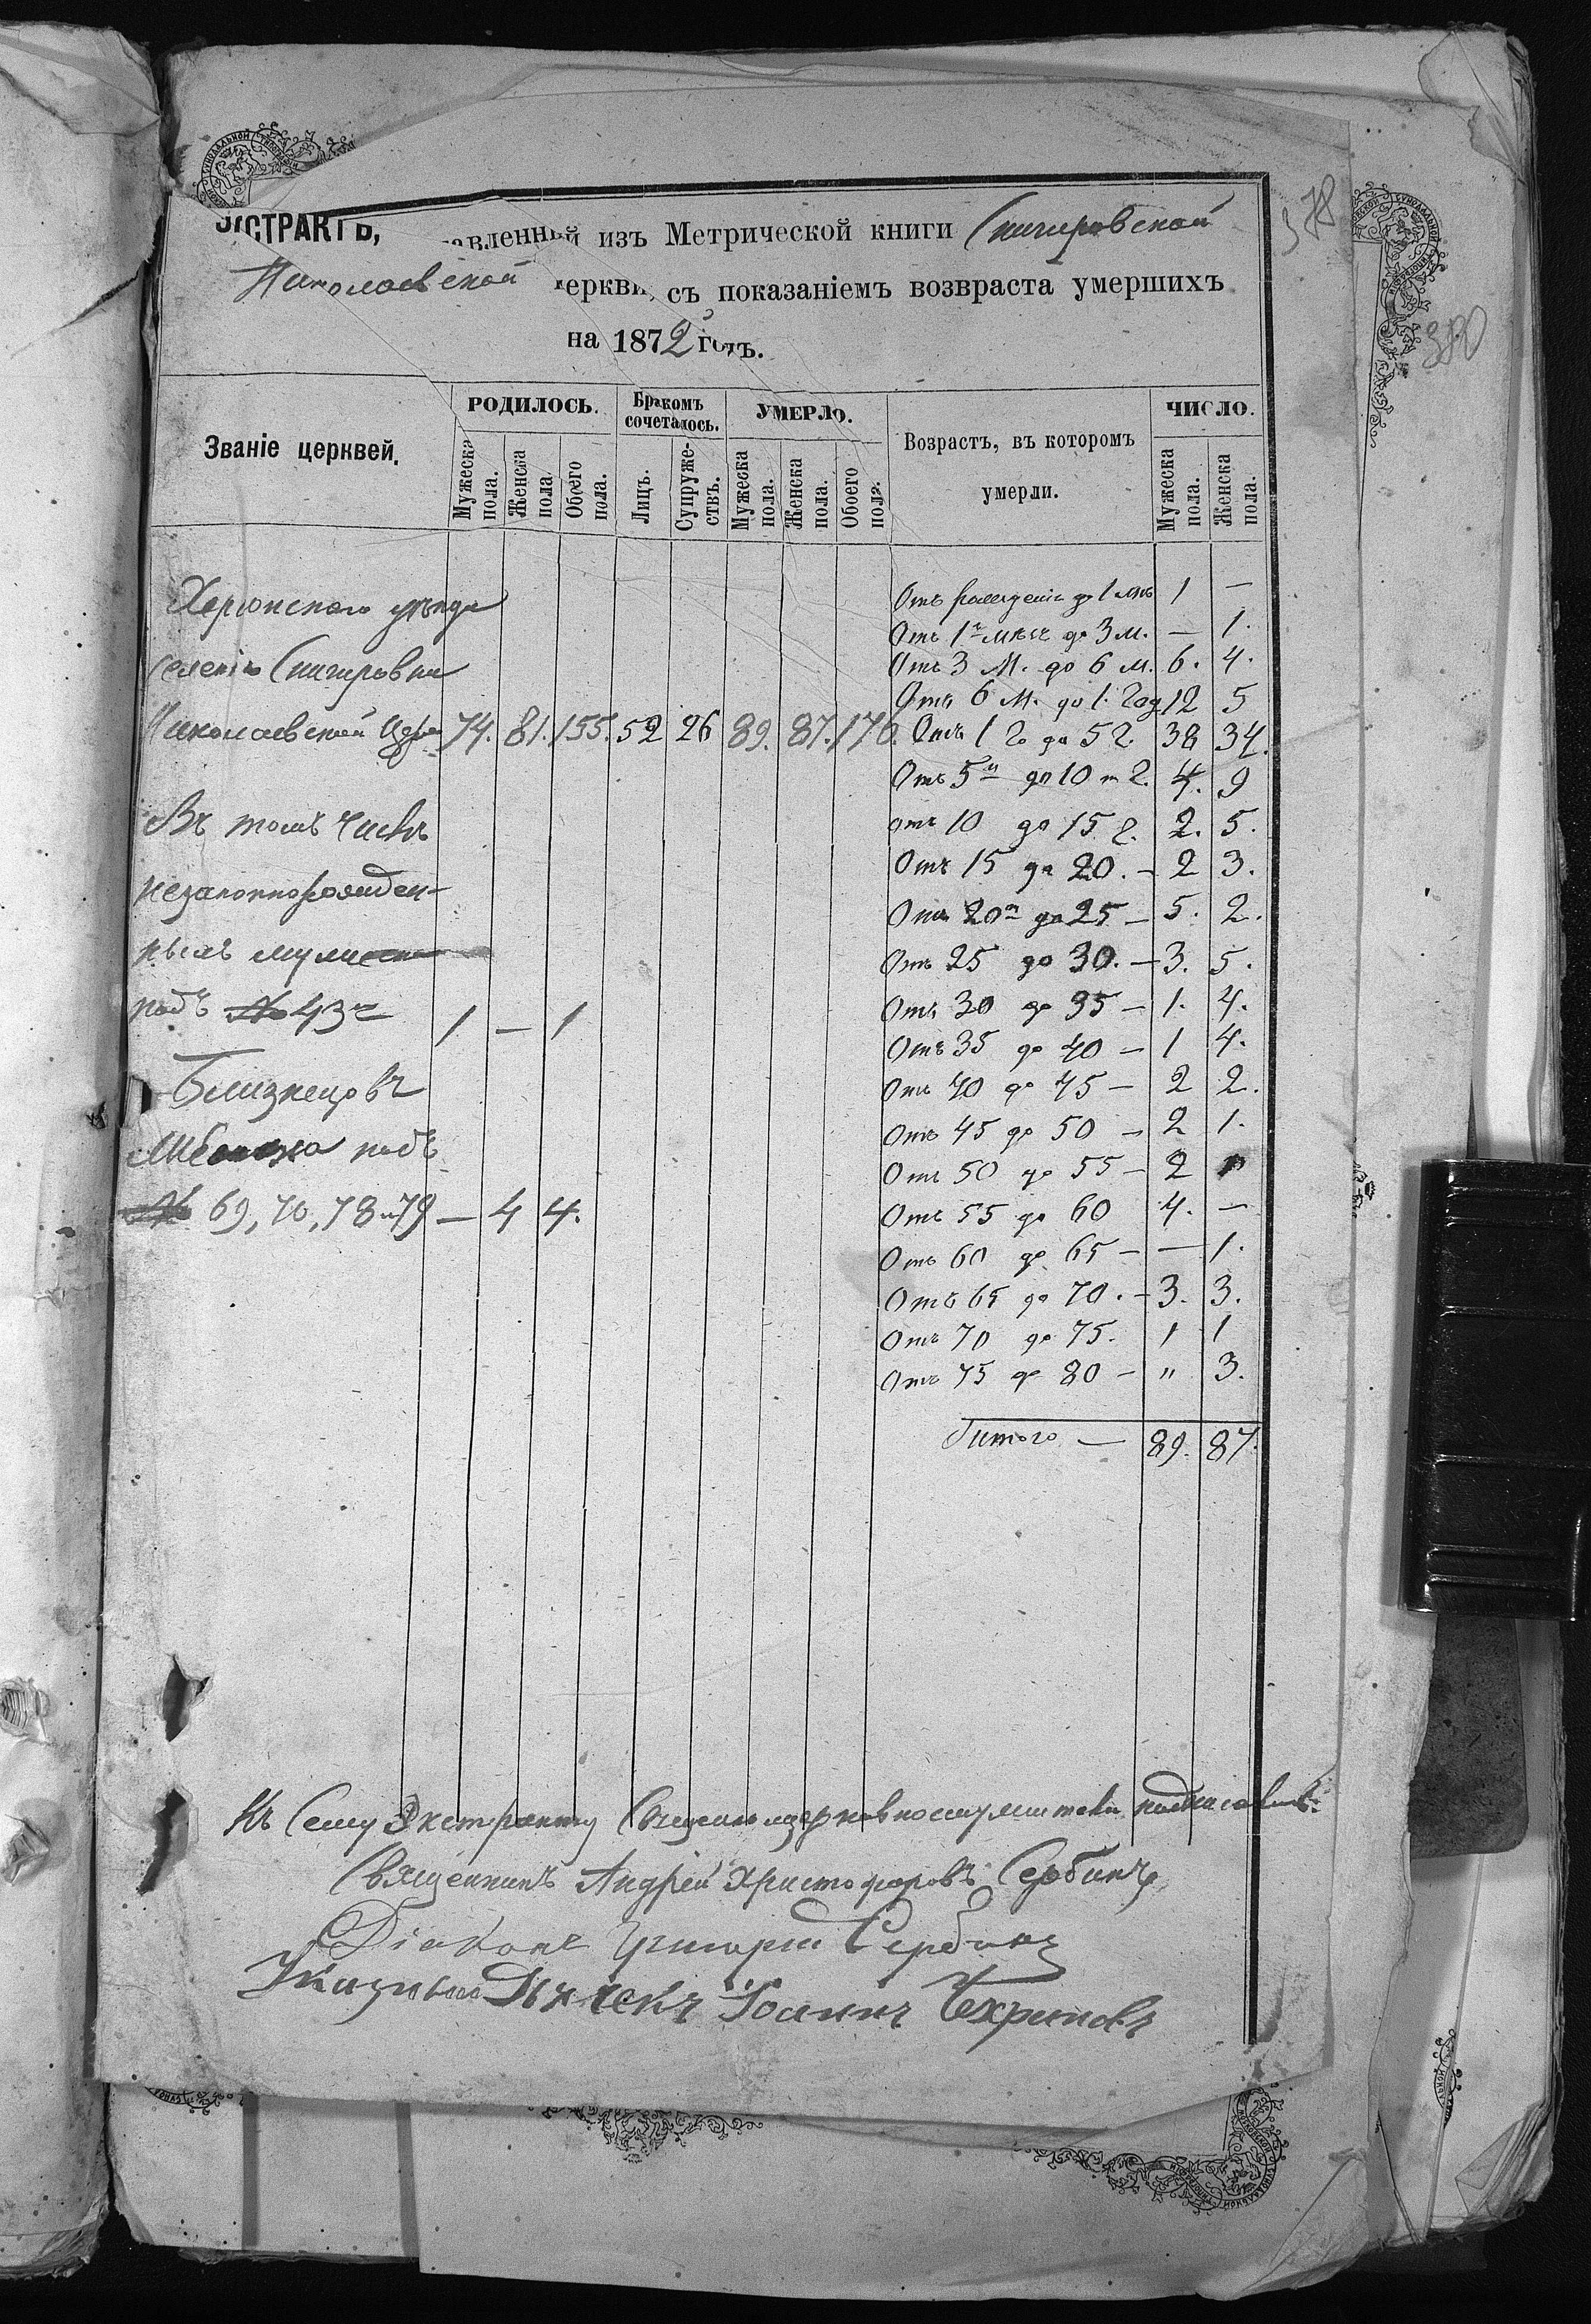 ЭКСТРАКТЪ, составленный изъ Метрической книги Снигировской
Николаевской церкви, съ показаніемъ возвраста умершихъ
на 1872 годъ.
378
380
Званіе церквей.
РОДИЛОСЬ.
Бракомъ сочеталось.
УМЕРЛО.
Возрастъ, въ которомъ умерли.
ЧИСЛО.
Мужеска пола.
Женска пола.
Обоего пола.
Лицъ.
Супружествъ.
Мужеска пола.
Женска пола.
Обоего пола.
Мужеска пола.
Женска пола.
Херсонскаго уѣзда
селенія Снигировки
Николаевской Церк 74. 81. 155. 52 26 89. 87. 176.
Въ томъ числѣ
незаконнорожден-
ныхъ
подъ № 43 1 — 1
Близнецовъ
подъ
№ 69, 70, 78 и 79 — 4 4.
Отъ рожденія до 1 мѣс 1 —
Отъ 1 мѣся до 3 м. — 1.
Отъ 3 м. до 6 м. 6. 4.
Отъ 6 м. до 1. год 12 5
Отъ 1 го до 5 г. 38 34.
Отъ 5и до 10 т г. 4. 9
отъ 10 до 15 г. 2. 5.
Отъ 15 до 20. — 2 3.
Отъ 20 до 25 — 5. 2.
Отъ 25 до 30. — 3. 5.
Отъ 30 до 35 — 1. 4.
Отъ 35 до 40 — 1 4.
Отъ 40 до 45 — 2 2.
Отъ 45 до 50 — 2 1.
Отъ 50 до 55 — 2
Отъ 55 до 60 4. —
Отъ 60 до 65 — — 1.
Отъ 65 до 70. — 3. 3.
Отъ 70 до 75. 1 1
Отъ 75 до 80 — " 3.
Итого — 89. 87.
Къ сему Экстракту Священноцерковнослужители подписались:
Священникъ Андрей Христофоровъ Сербинъ
Діаконъ Григорій Сербинъ
Указный Дьячекъ Іоаннъ